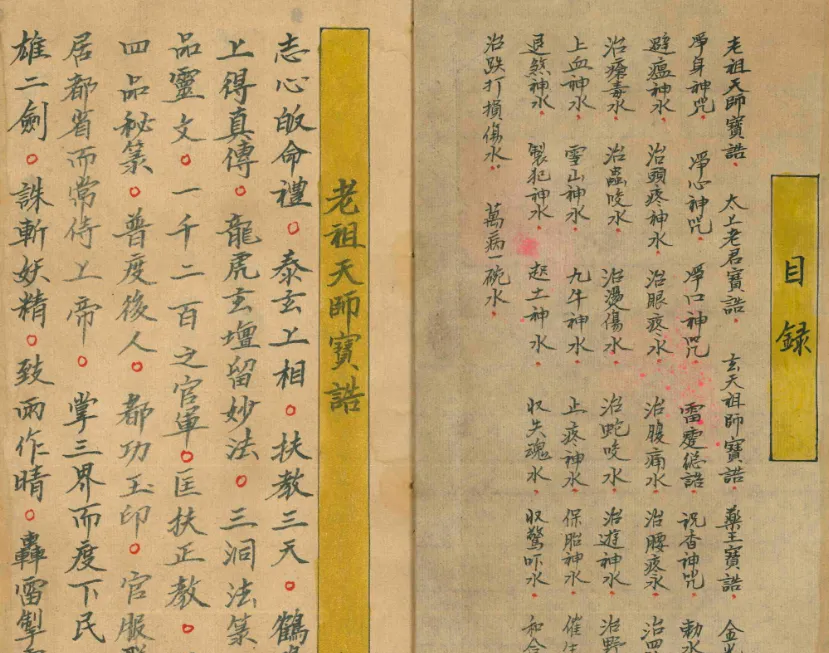 目録
老祖天師寶誥 太上老君寶誥 玄天祖師寶誥 藥王寶誥 金光
淨身神咒 淨心神咒 淨口神咒 雷霆總誥 祝香神咒 勅水
避瘟神水 治頭疼神水 治眼疼水 治腹痛水 治腰疼水 治四
治瘡毒水 治蟲咬水 治燙傷水 治蛇咬水 治遊神水 治野
上血神水 雪山神水 九牛神水 止疼神水 保胎神水 催
退煞神水 製犯神水 起土神水 收失魂水 收驚吓水 和合
治跌打損傷水 萬病一碗水
老祖天師寶誥
志心皈命禮。泰玄上相。扶教三天。鶴
上得真傳。龍虎玄壇留妙法。三洞法籙
品靈文。一千二百之官軍。匡扶正教。
四品秘籙。普度後人。都功玉印。官服
居都省而常侍上帝。掌三界而度下民
雄二劍。誅斬妖精。致雨作晴。轟雷掣